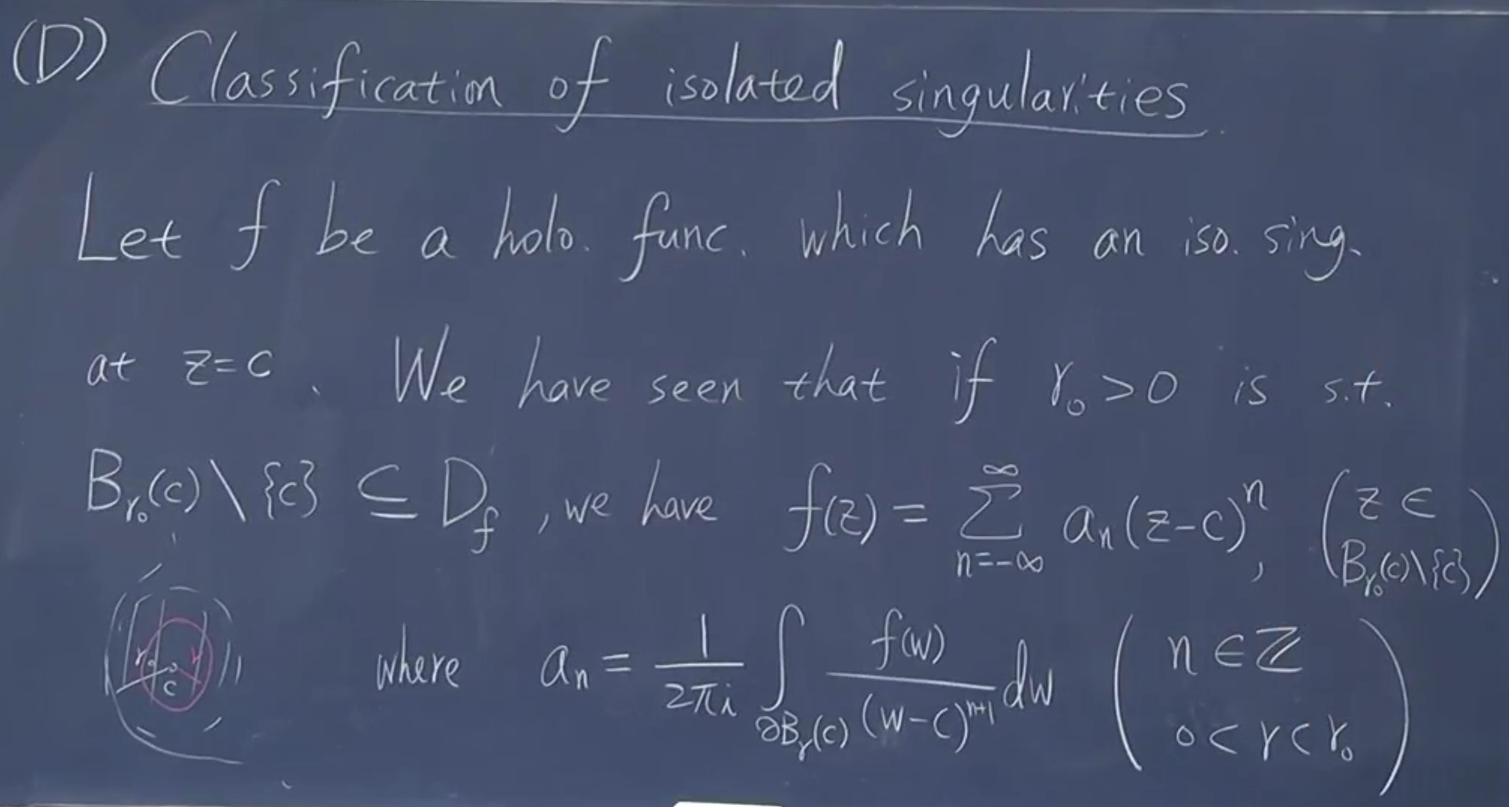 (D) Classification of isolated singularities
Let f be a holo. func. which has an iso. sing.
at z=c. We have seen that if r₀>0 is s.t.
B_{r₀}(c)\{c} ⊆ D_f, we have f(z) = ∑_{n=-∞}^{∞} a_n(z-c)^n, (z ∈ B_{r₀}(c)\{c})
r₀ r
c
where a_n = \frac{1}{2πi} ∫_{∂B_r(c)} \frac{f(w)}{(w-c)^{n+1}} dw (n∈ℤ 0<r<r₀)